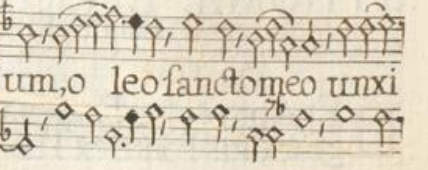 um,o leo ſancto meo unxi
7b